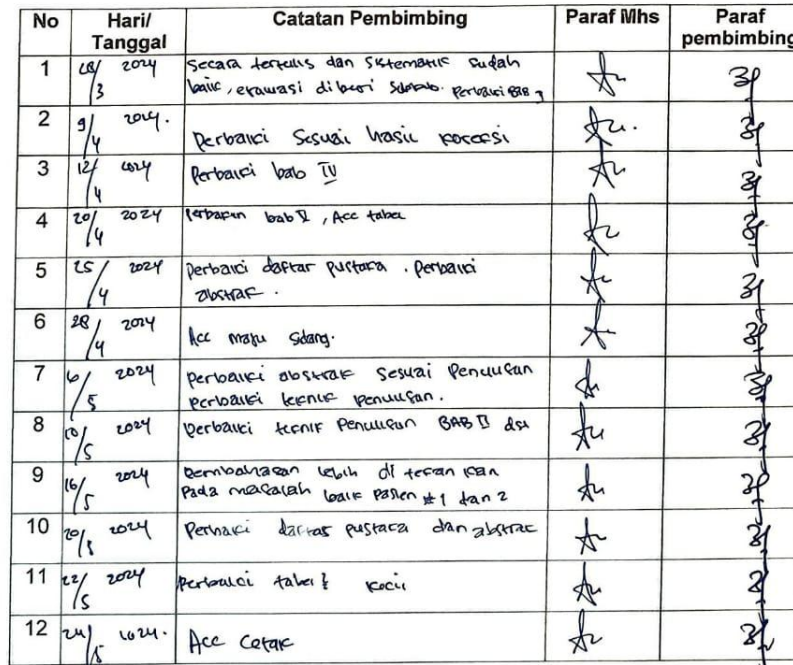 No Hari/ Tanggal Catatan Pembimbing Paraf Mhs Paraf pembimbing
1 28/3 2024 Secara tertulis dan sistematik sudah
baik, evaluasi diberi Perbaiki BAB 3
2 9/4 2024. Perbaiki Sesuai hasil koreksi
3 12/4 2024 Perbaiki bab IV
4 20/4 2024 bab V, Acc tabel
5 25/4 2024 Perbaiki daftar pustaka. Perbaiki
abstrak.
6 28/4 2024 Acc maju Sidang.
7 6/5 2024 Perbaiki abstrak Sesuai Penulisan
perbaiki teknik penulisan.
8 10/5 2024 Perbaiki teknik Penulisan BAB II
9 16/5 2024 Pembahasan lebih di tekan kan
Pada masalah baik Pasien #1 dan 2
10 20/5 2024 Perbaiki daftar pustaka dan abstrak
11 22/5 2024 Perbaiki tabel kecil
12 24/5 2024. Acc Cetak